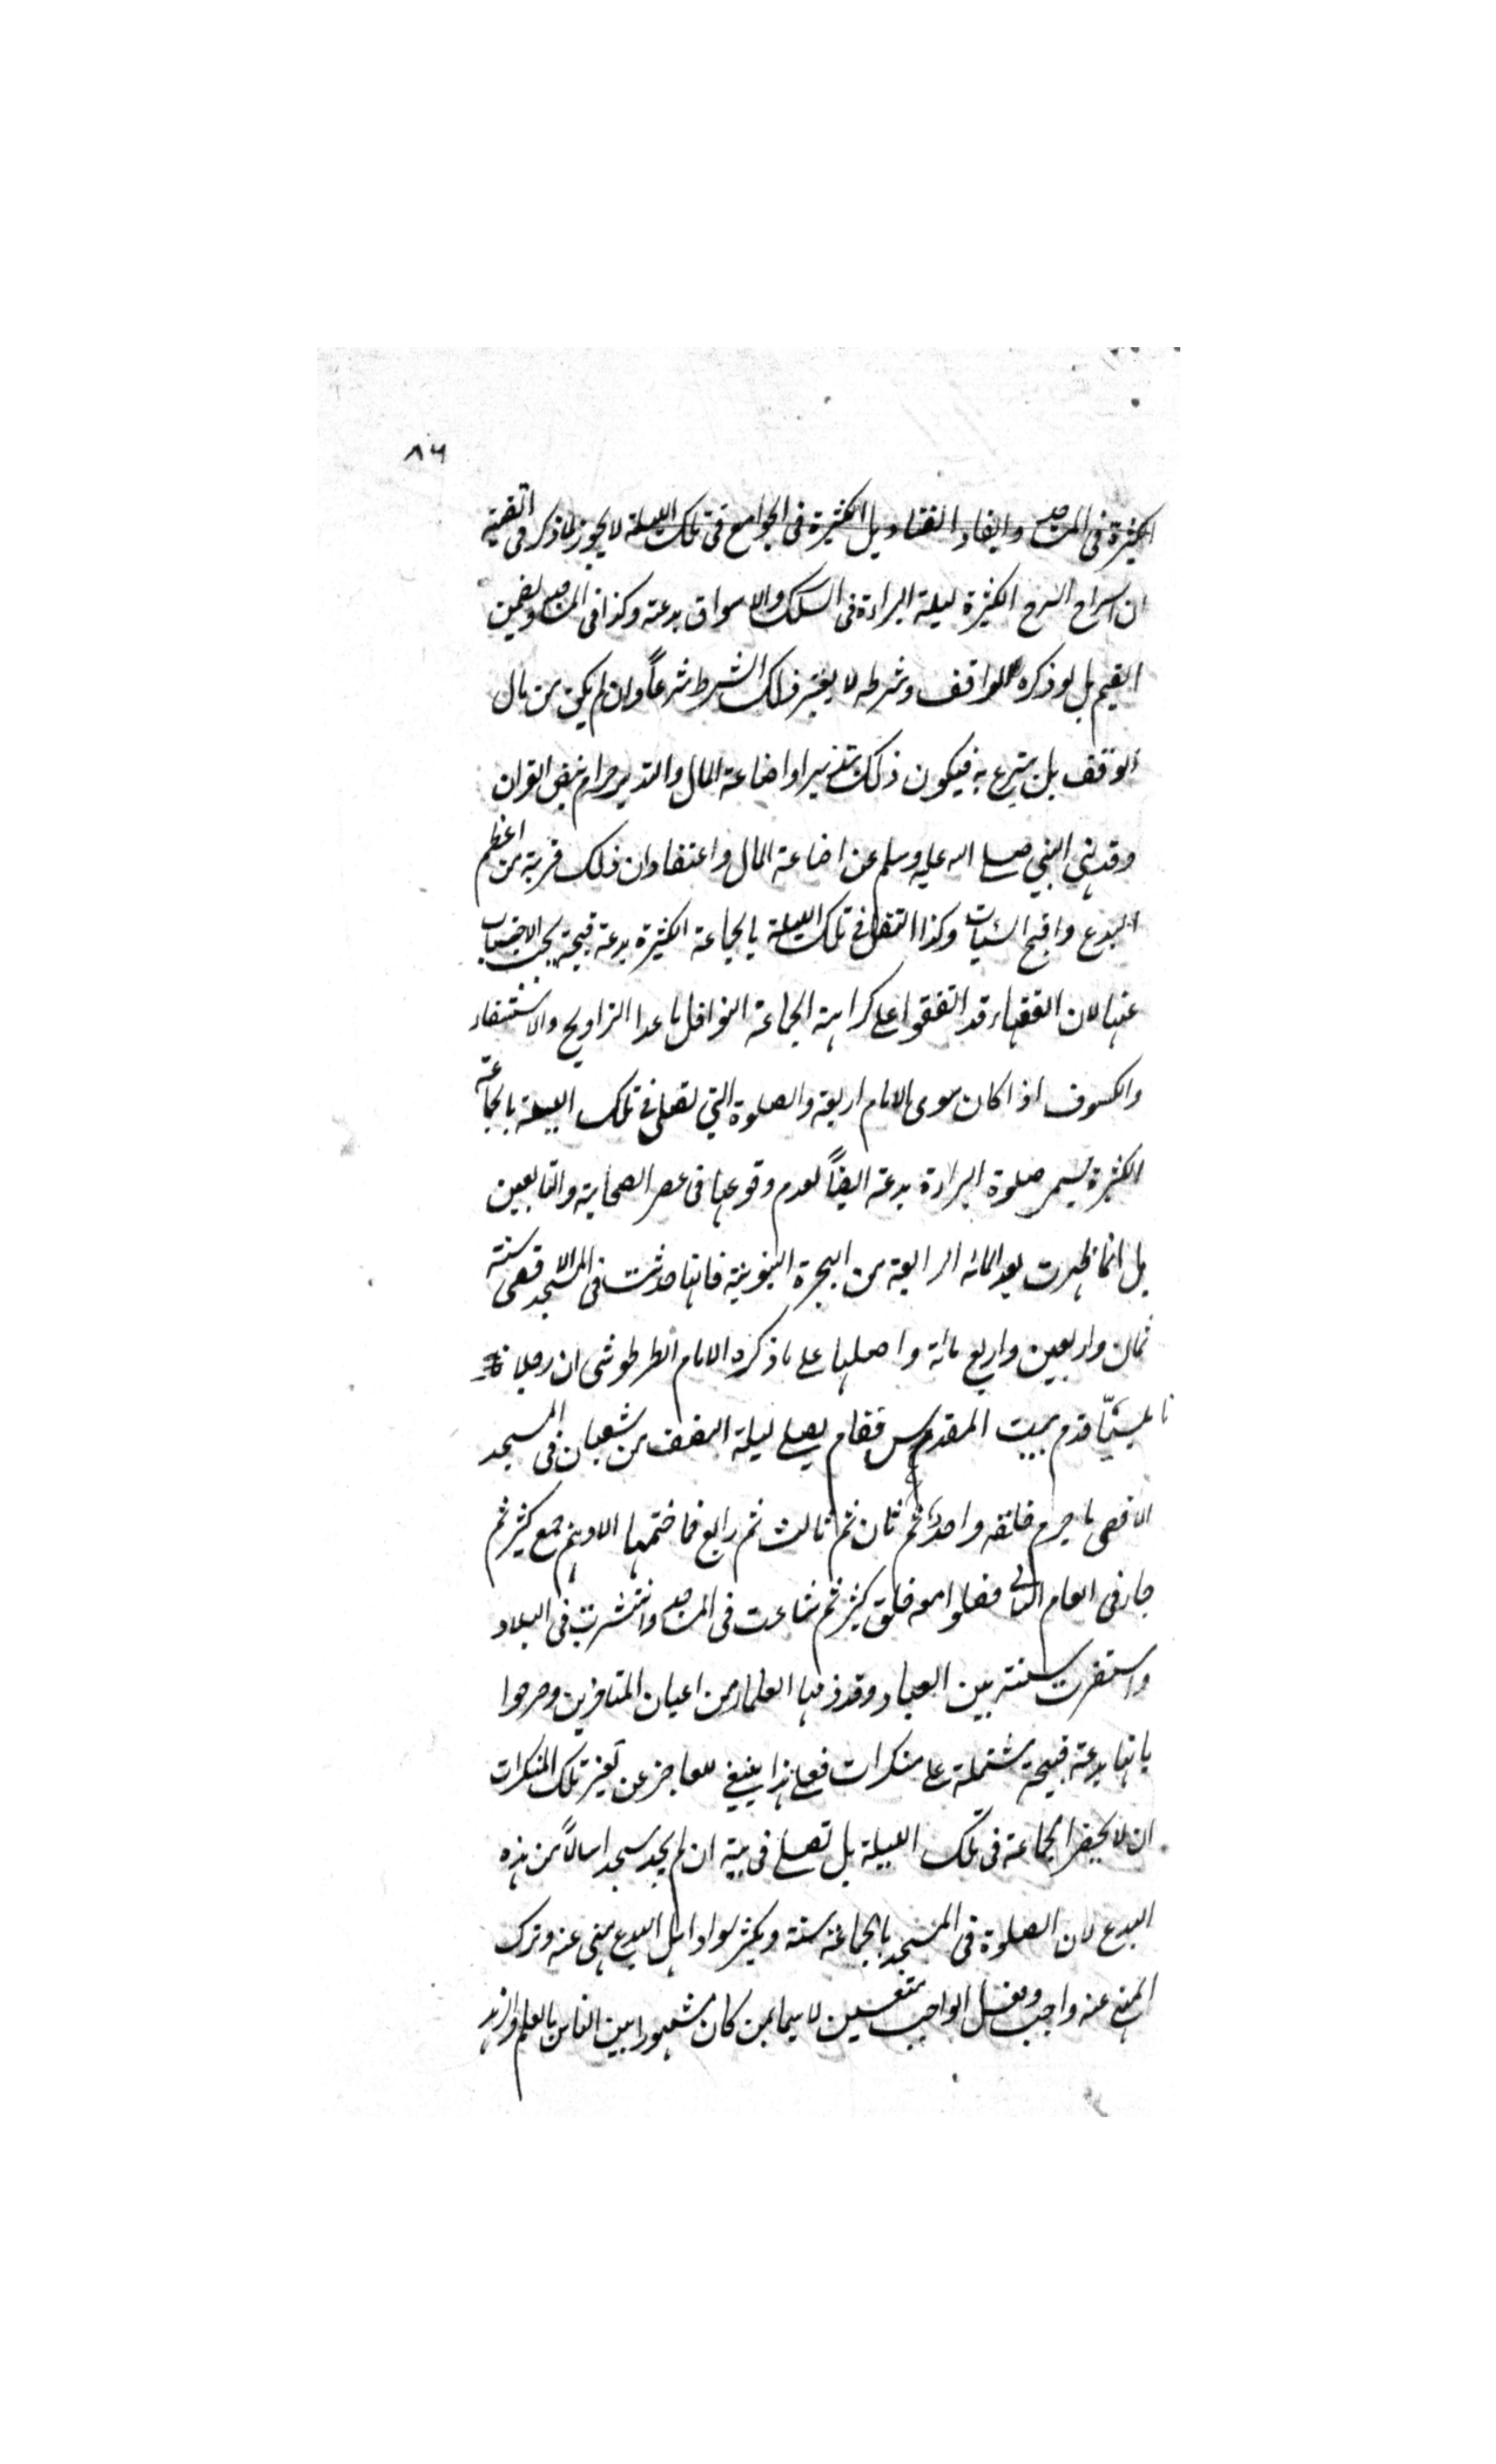 ٨٦
الكثيرة في المساجد وايقاد القناديل الكثيرة في الجوامع في تلك الليلة لا يجوز لما ذكر في القنية
ان اسراج السرج الكثيرة ليلة البراءة في السكك والاسواق بدعة وكذا في المساجد ويضمن
القيم بل لو ذكره الواقف وشرطه لا يعتبر ذلك الشرط شرعاً وان لم يكن من مال
الوقف بل يتبرع به فيكون ذلك تبذيرا واضاعة المال والتبذير حرام بنص القران
وقد نهى النبي صلى الله عليه وسلم عن اضاعة المال واعتقاد ان ذلك قربة من اعظم
البدع واقبح السيئات وكذا التنفل في تلك الليلة بالجماعة الكثيرة بدعة قبيحة يجب الاجتناب
عنها لان الفقهاء قد اتفقوا على كراهة الجماعة النوافل ما عدا التراويح والاستسقاء
والكسوف اذا كان سوى الامام اربعة والصلوة التي تصلى في تلك الليلة بالجماعة
الكثيرة يسمى صلوة البراءة بدعة ايضاً لعدم وقوعها في عصر الصحابة والتابعين
بل انما ظهرت بعد المائه الرابعة من الهجرة النبوية فانها حدثت في المسجد الاقصى سنة
ثمان واربعين واربع مائة واصلها على ما ذكره الامام الطرطوشي ان رجلا
نابلسيّا قدم بيت المقدس فقام يصلي ليلة النصف من شعبان في المسجد
الاقصى فاحرم خلفه واحد ثم ثان ثم ثالث ثم رابع فما ختمها الا وهم جمع كثير ثم
جاء في العام الثاني فصلوا معه خلق كثير ثم شاعت في المساجد وانتشرت في البلاد
واستقرت سنة بين العباد وقد ذمها العلماء من اعيان المتاخرين وصرحوا
بانها بدعة قبيحة مشتملة على منكرات فعلى هذا ينبغي للعاجز عن تغيير تلك المنكرات
ان لا يحضر الجماعة في تلك الليلة بل تصلي في بيته ان لم يجد مسجدا سالماً من هذه
البدع لان الصلوة في المسجد بالجماعة سنة وتكثير سواد اهل البدع منهي عنه وترك
المنهي عنه واجب وفعل الواجب متعين لا سيما لمن كان مشهورا بين الناس بالعلم والزهد